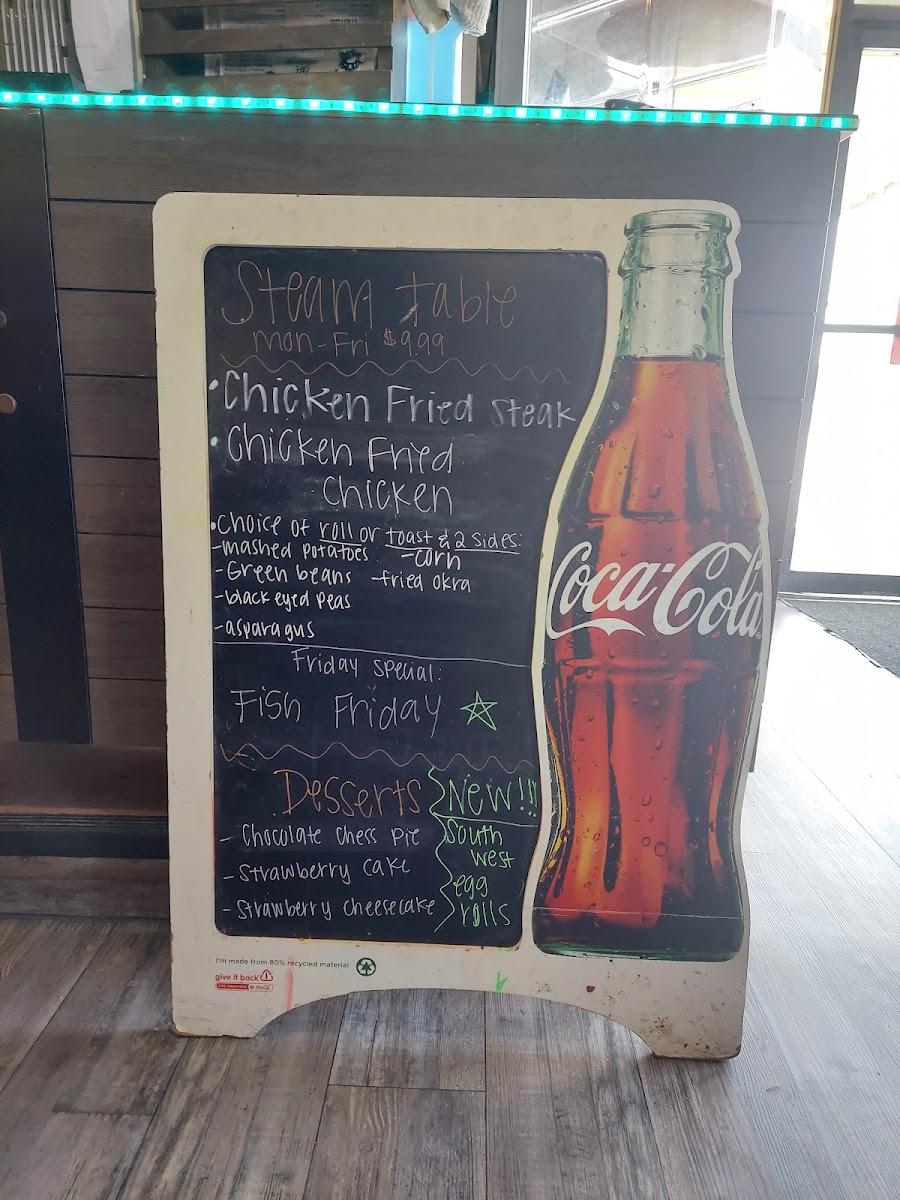 Steam table
mon-Fri $9.99
• Chicken Fried steak
• Chicken Fried
Chicken
• Choice of roll or toast & 2 sides:
-mashed potatoes -corn
-Green beans -fried okra
-black eyed peas
-asparagus
Friday special:
Fish Friday
Desserts
- Chocolate Chess Pie
- Strawberry Cake
- Strawberry cheesecake
New!!!
South
west
egg
rolls
Coca-Cola
I'm made from 80% recycled material
give it back